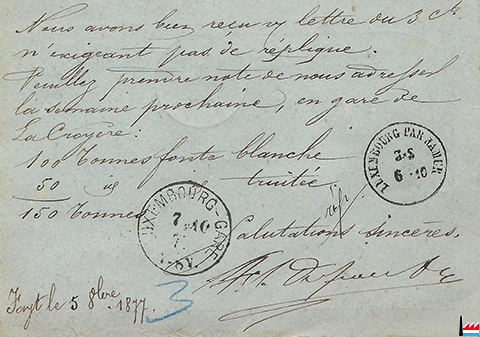 Nous avons bien reçu vy lettre du 3 ct
n'exigeant pas de réplique.
Veuillez prendre note de nous adresser
la semaine prochaine, en gare de
La Croyère:
100 Tonnes fonte blanche
50 " truitée
150 Tonnes
Salutations sincères.
LUXEMBOURG PAR NAMUR
3-S
6 10
LUXEMBOURG-GARE
7 10
7
1-8V.
le 5 8bre 1877.
3